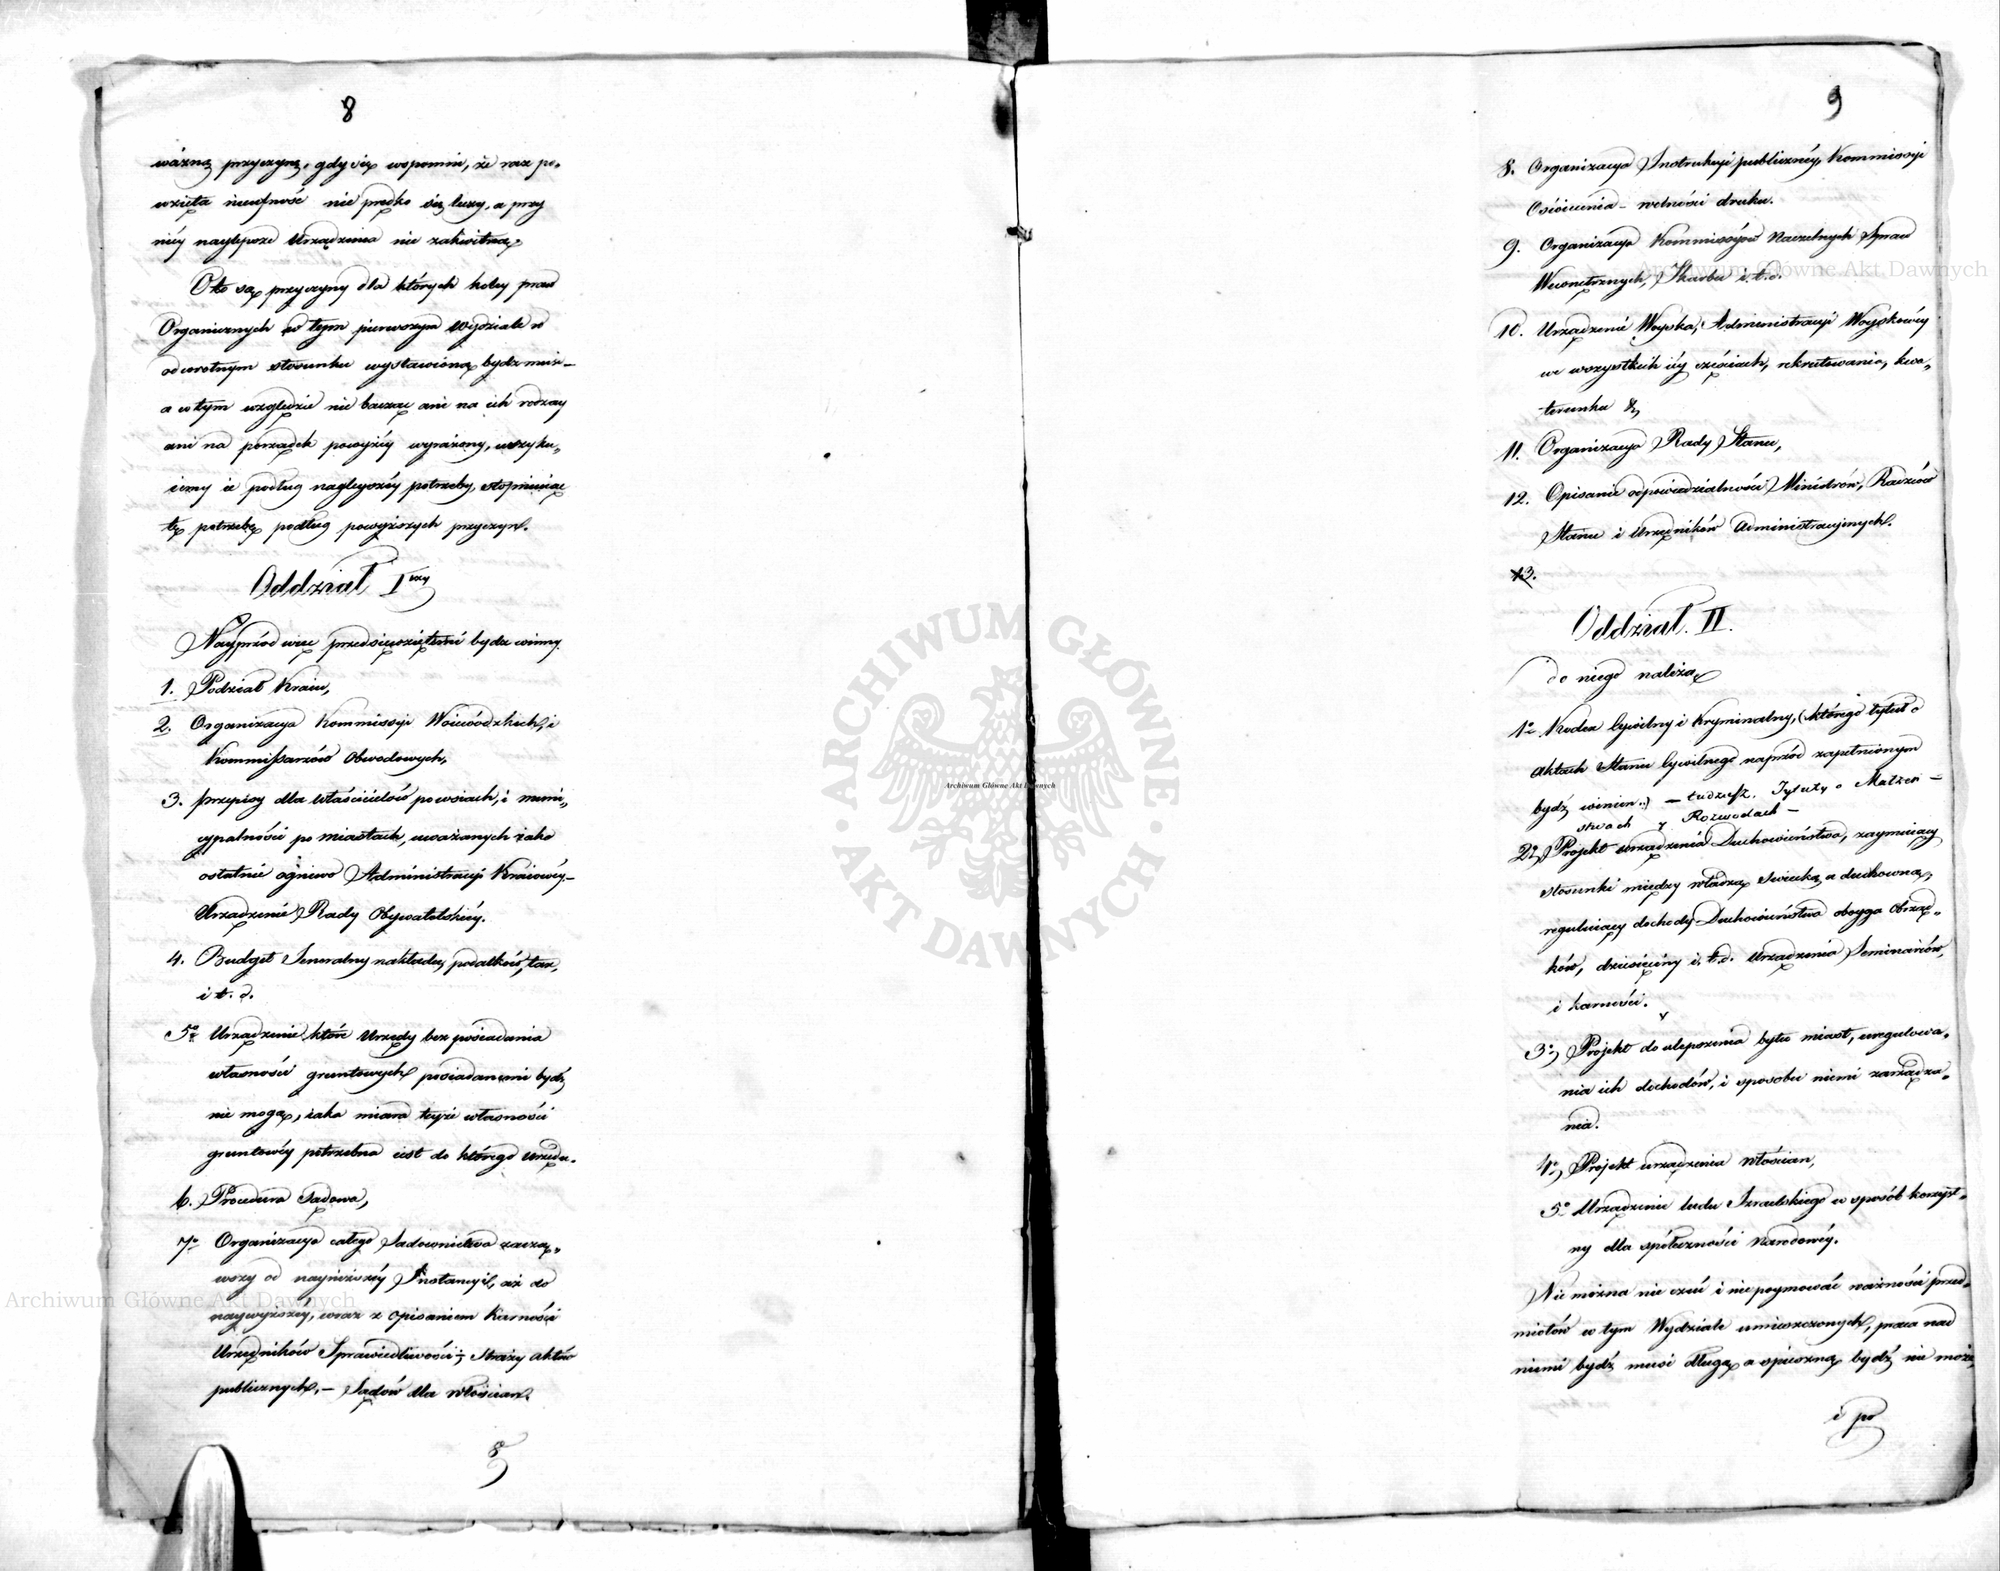 8
ważną przyczyną, gdy się wspomni, że raz po-
wzięta nieufność nie prędko się leczy, a przy
niéy naylepsze Urządzenia nie zakwitną.
Oto są przyczyny dla których koley praw
Organicznych w tym pierwszym Wydziale w
odwrotnym stosunku wystawioną bydź musi—
a w tym względzie nie bacząc ani na ich rodzay
ani na porządek powyżéy wyrażony, uszyku-
iemy ie podług nagleyszéy potrzeby, stopniuiąc
tę potrzebę podług powyższych przyczyn.
Oddział Iwszy
Nayprzód więc przedsięwziętemi bydz winny.
1. Podział Kraiu,
2. Organizacya Kommissyi Woiewódzkich, i
Kommissarzów Obwodowych,
3. przepisy dla Właścicielów po wsiach, i muni-
cypalności po miastach, uważanych iako
ostatnie ogniwo Administracyi Kraiowéy.—
Urządzenie Rady Obywatelskiéy.
4. Budget Jeneralny nakładu, podatków, tax,
i t. d.
5º Urządzenie które Urzędy bez posiadania
własności gruntowych posiadanemi bydź
nie mogą, iaka miara teyże własności
gruntowéy potrzebna iest do którego Urzędu.
6. Procedura Sądowa,
7º Organizacya całego Sądownictwa zacząw-
wszy od nayniższéy Instancyi, aż do
naywyższéy, wraz z opisaniem Karności
Urzędników Sprawiedliwości i Straży aktów
publicznych,— Sądów dla Włościan.
8
9
8. Organizacya Instrukcyi publicznéy, Kommissyi
Oświecenia — wolności druku.
9. Organizacya Kommissyów Naczelnych Spraw
Wewnętrznych, Skarbu i. t. d.
10. Urządzenie Woyska, Administracyi Woyskowéy
we wszystkich iéy częściach, rekrutowania, kwa-
terunku &
11. Organizacya Rady Stanu,
12. Opisanie odpowiedzialności Ministrów, Radzców
Stanu i Urzędników Administracyjnych.
13.
Oddział. II.
do niego należą
1º Kodex Cywilny i Kryminalny, (którego tytuł o
Aktach Stanu Cywilnego naprzód zapełnionym
bydź winien.) — tudzież. Tytuły o Małżeń—
stwach y Rozwodach —
2º, Projekt urządzenia Duchowieństwa, zaymuiący
stosunki między władzą Swiecką a duchowną,
reguluiący dochody Duchowieństwa oboyga Obrząd-
ków, dziesięciny i. t. d. Urządzenia Seminariów,
i karności.
3º, Projekt do ulepszenia bytu miast, uregulowa-
nia ich dochodów, i sposobu niemi zarządza-
nia.
4º, Projekt urządzenia Włościan,
5º Urządzenie ludu Izraelskiego w sposób korzyst-
ny dla społeczności Narodowéy.
Nie można nie czuć i nie poymować ważności przed-
miotów w tym Wydziale umieszczonych, praca nad
niemi bydź musi długą a spieszną bydź nie może
i po
Archiwum Główne Akt Dawnych
Archiwum Główne Akt Dawnych
Archiwum Główne Akt Dawnych
ARCHIWUM GŁÓWNE
AKT DAWNYCH